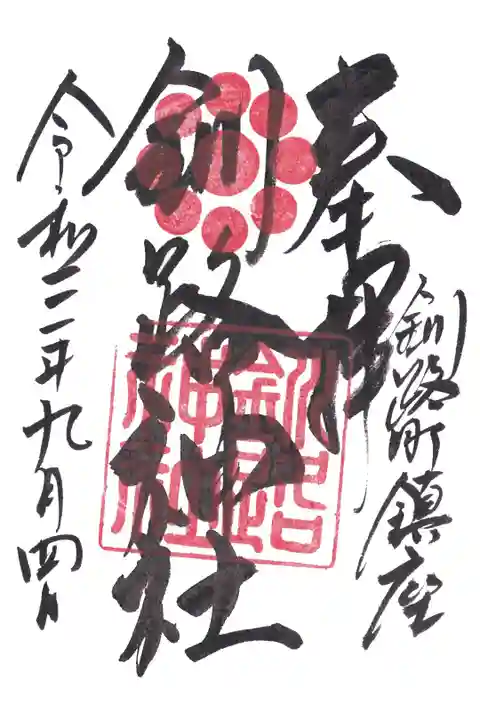 奉拝
釧路町鎮座
釧路神社
釧路神社
令和二年九月四日